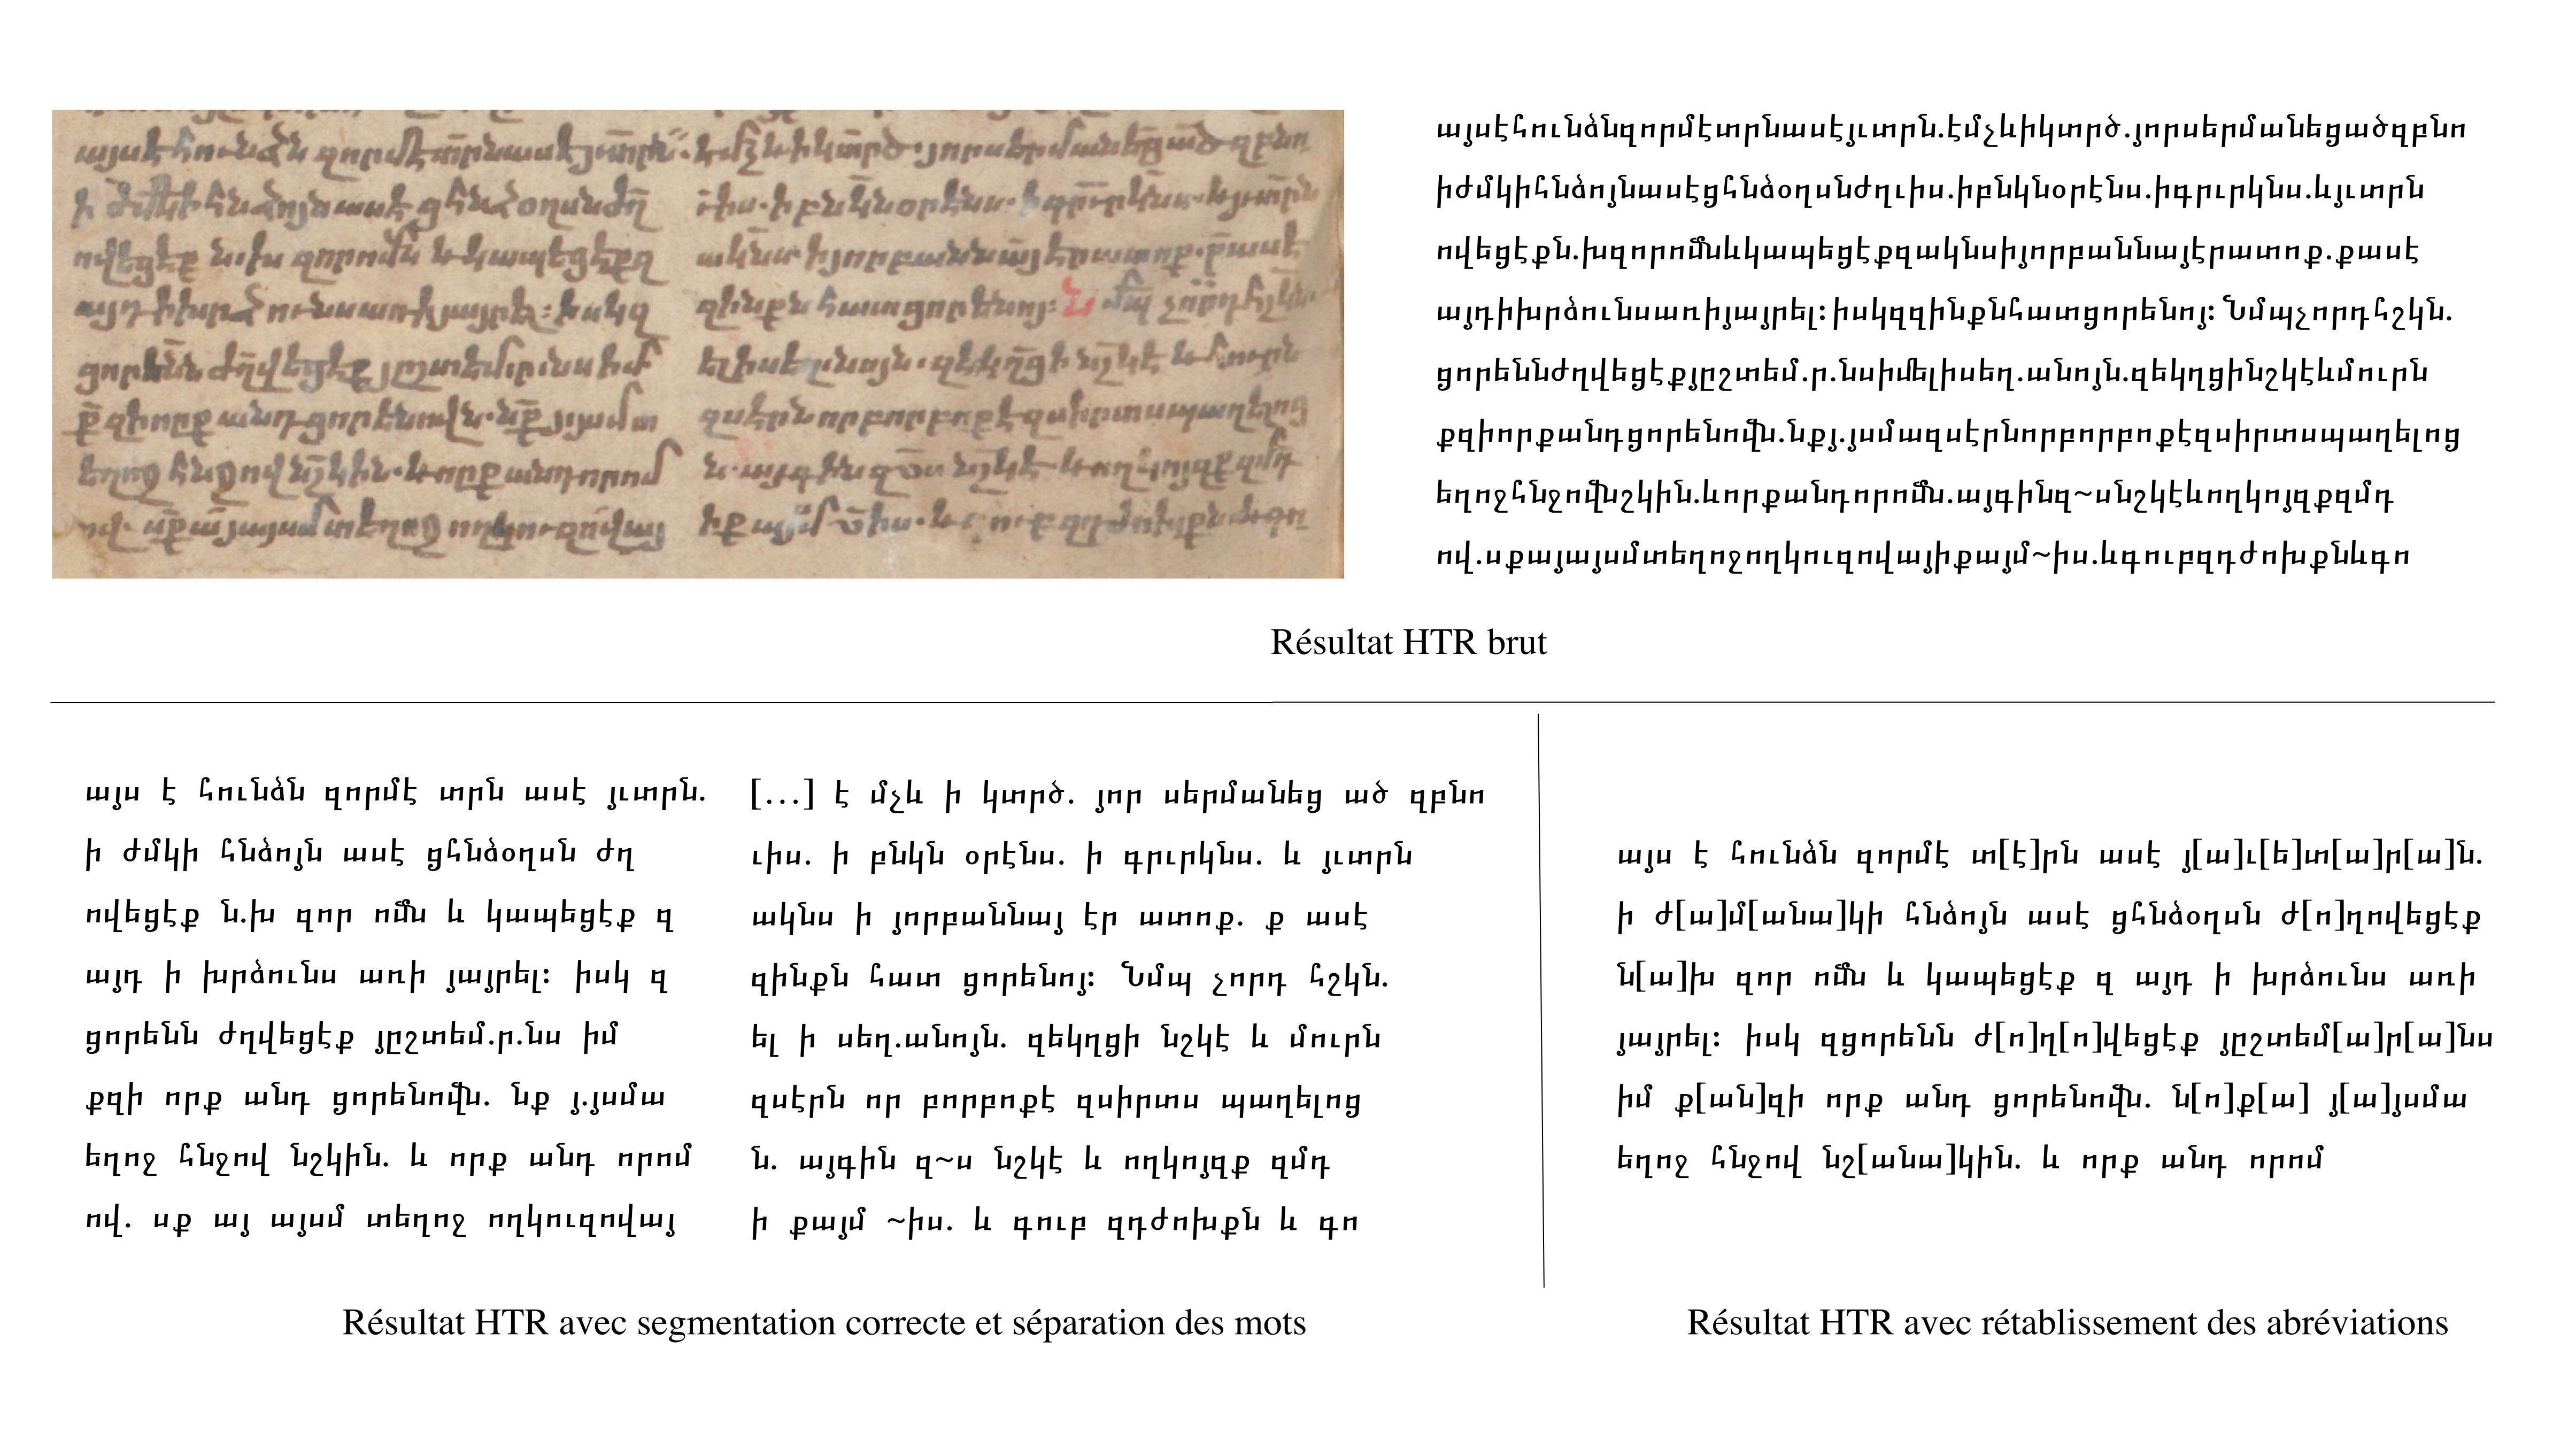 այսէհունձնզորմէտրնասէյւտրն.էմչևիկտրծ.յորսերմանեցածզբնո
իժմկիհնձոյնասէցհնձօղսնժղւիս.իբնկնօրէնս.իգրւրկնս.ևյւտրն
ովեցէքն.խզորոմնևկապեցէքզակնսիյորբաննայէրատոք.քասէ
այդիխրձունսառիյայրել։իսկզզինքնհատցորենոյ։Նմպչորդհշկն.
ցորեննժղվեցէքյըշտեմ.ր.նսիմելիսեղ.անոյն.զեկղցինշկէևմուրն
քզիորքանդցորենովն.նքյ.յսմազսէրնորբորբոքէզսիրտսպաղելոց
եղոջհնջովնշկին.ևորքանդորոմն.այգինզ~սնշկէևողկոյզքզմդ
ով.սքայայսմտեղոջողկուզովայիքայմ~իս.ևգուբզդժոխքնևգո
Résultat HTR brut
այս է հունձն զորմէ տրն ասէ յւտրն.
ի ժմկի հնձոյն ասէ ցհնձօղսն ժղ
ովեցէք ն.խ զոր ոմն և կապեցէք զ
այդ ի խրձունս առի յայրել։ իսկ զ
ցորենն ժղվեցէք յըշտեմ.ր.նս իմ
քզի որք անդ ցորենովն. նք յ.յսմա
եղոջ հնջով նշկին. և որք անդ որոմ
ով. սք այ այսմ տեղոջ ողկուզովայ
[...] է մչև ի կտրծ. յոր սերմանեց ած զբնո
ւիս. ի բնկն օրէնս. ի գրւրկնս. և յւտրն
ակնս ի յորբաննայ էր ատոք. ք ասէ
զինքն հատ ցորենոյ։ Նմպ չորդ հշկն.
ել ի սեղ.անոյն. զեկղցի նշկէ և մուրն
զսէրն որ բորբոքէ զսիրտս պաղելոց
ն. այգին զ~ս նշկէ և ողկոյզք զմդ
ի քայմ ~իս. և գուբ զդժոխքն և գո
Résultat HTR avec segmentation correcte et séparation des mots
այս է հունձն զորմէ տ[է]րն ասէ յ[ա]ւ[ե]տ[ա]ր[ա]ն.
ի ժ[ա]մ[անա]կի հնձոյն ասէ ցհնձօղսն ժ[ո]ղովեցէք
ն[ա]խ զոր ոմն և կապեցէք զ այդ ի խրձունս առի
յայրել։ իսկ զցորենն ժ[ո]ղ[ո]վեցէք յըշտեմ[ա]ր[ա]նս
իմ ք[ան]զի որք անդ ցորենովն. ն[ո]ք[ա] յ[ա]յսմա
եղոջ հնջով նշ[անա]կին. և որք անդ որոմ
Résultat HTR avec rétablissement des abréviations